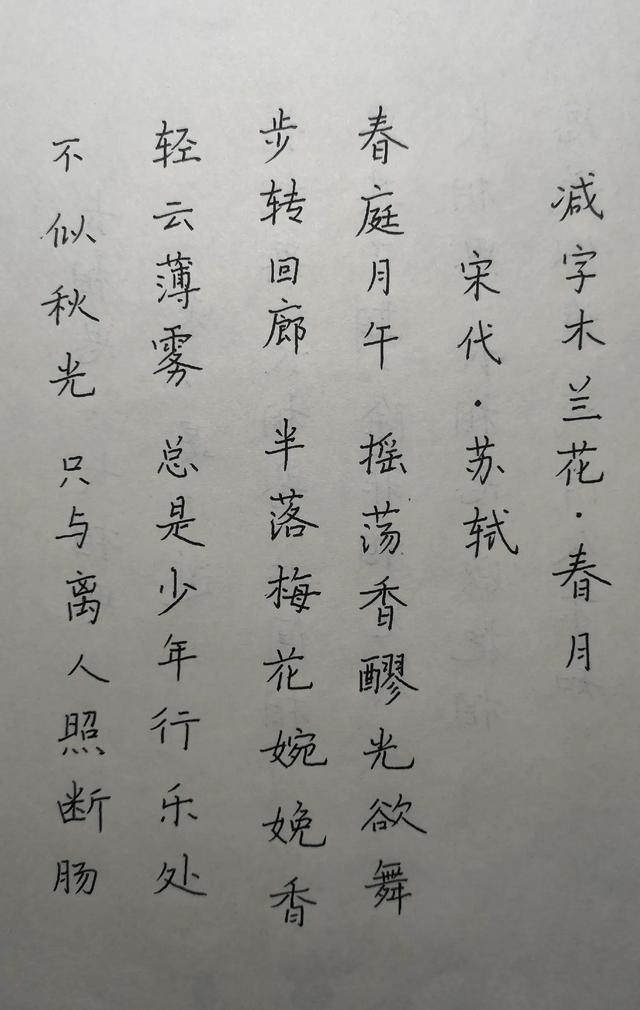 减字木兰花·春月
宋代·苏轼
春庭月午 摇荡香醪光欲舞
步转回廊 半落梅花婉娩香
轻云薄雾 总是少年行乐处
不似秋光 只与离人照断肠